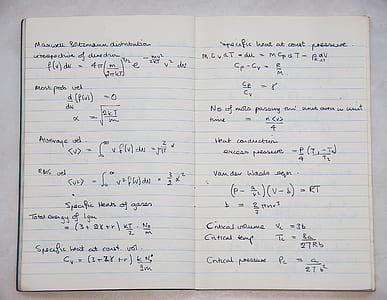 Maxwell Boltzmann distribution
irrespective of direction
f(v) dv = 4π (m/2πkT)^3/2 e^-mv²/2kT v² dv
Most prob vel
d/dv (f(v)) = 0
α = √(2kT/m)
Average vel
<v> = ∫₀^∞ v f(v) dv = 2/√π α
RMS vel
<v²> = ∫₀^∞ v² f(v) dv = 3/2 α²
Specific Heats of gases
Total energy of 1gm
= (3+2γ+r) kT/2 · N₀/m
Specific heat at const. vol.
Cv = (3+2γ+r) k N₀/2m
Specific heat at const pressure.
Cp - Cv = R/m
Cp/Cv = γ
No of mols passing thro' unit area in unit
time = n<v>/4
Heat conduction
excess pressure = P/4 (T₁-T₂/T₂)
Van der Waals eqn
(P - a/v²)(V - b) = RT
b = 2/3 πnσ³
Critical volume Vc = 3b
Critical temp Tc = 8a/27Rb
Critical pressure Pc = a/27b²